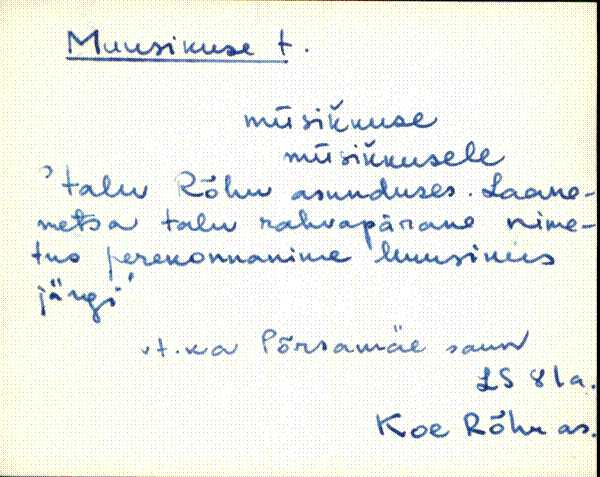 Muusikuse t.
müsik̆kuse
müsik̆kusele
'talu Rõhu asunduses. Laane-
metsa talu rahvapärane nime-
tus perekonnanime Muusikus
järgi'
vt. ka Põrsamäe saun
LS 81a.
Koe Rõhu as.